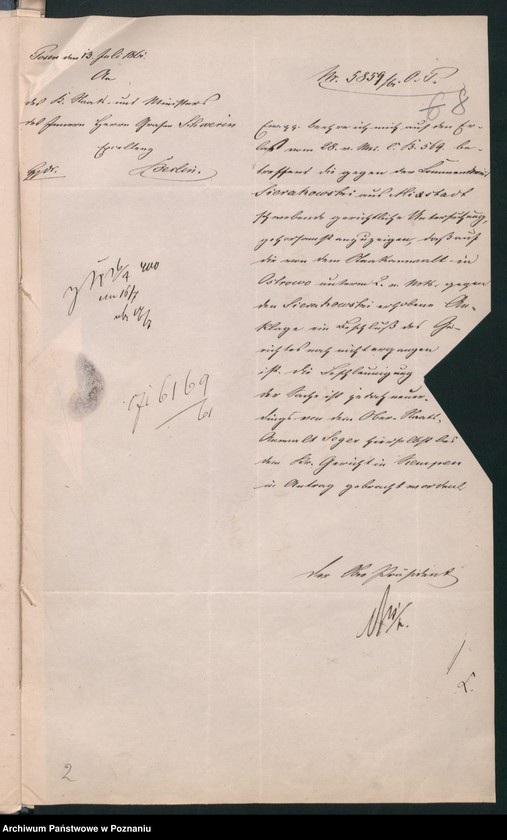 Posen den 13. Juli 1861.
An
des K. Staats- und Ministers
des Innern Herrn Grafen Schwerin
Excellenz
Berlin.
Nr. 5859/61. O. P.
8
Ew. beehre ich mich auf den Er-
laß vom 28. v. Mts. be-
treffend die gegen den
Sierakowski aus Mixstadt
schwebende gerichtliche Untersuchung,
gehorsamst anzuzeigen, daß auf
die von dem Staatsanwalt in
Ostrowo unterm v. Mts. gegen
den Sierakowski erhobene An-
klage ein Beschluß des Ge-
richtes noch nicht ergangen
ist. Die Beschleunigung
der Sache ist jedoch neuer-
dings von dem Ober-Staats-
Anwalt hierselbst bei
dem Kr. Gericht in Kempen
in Antrag gebracht worden.
6169
61
Der Ober Präsident
2
Archiwum Państwowe w Poznaniu